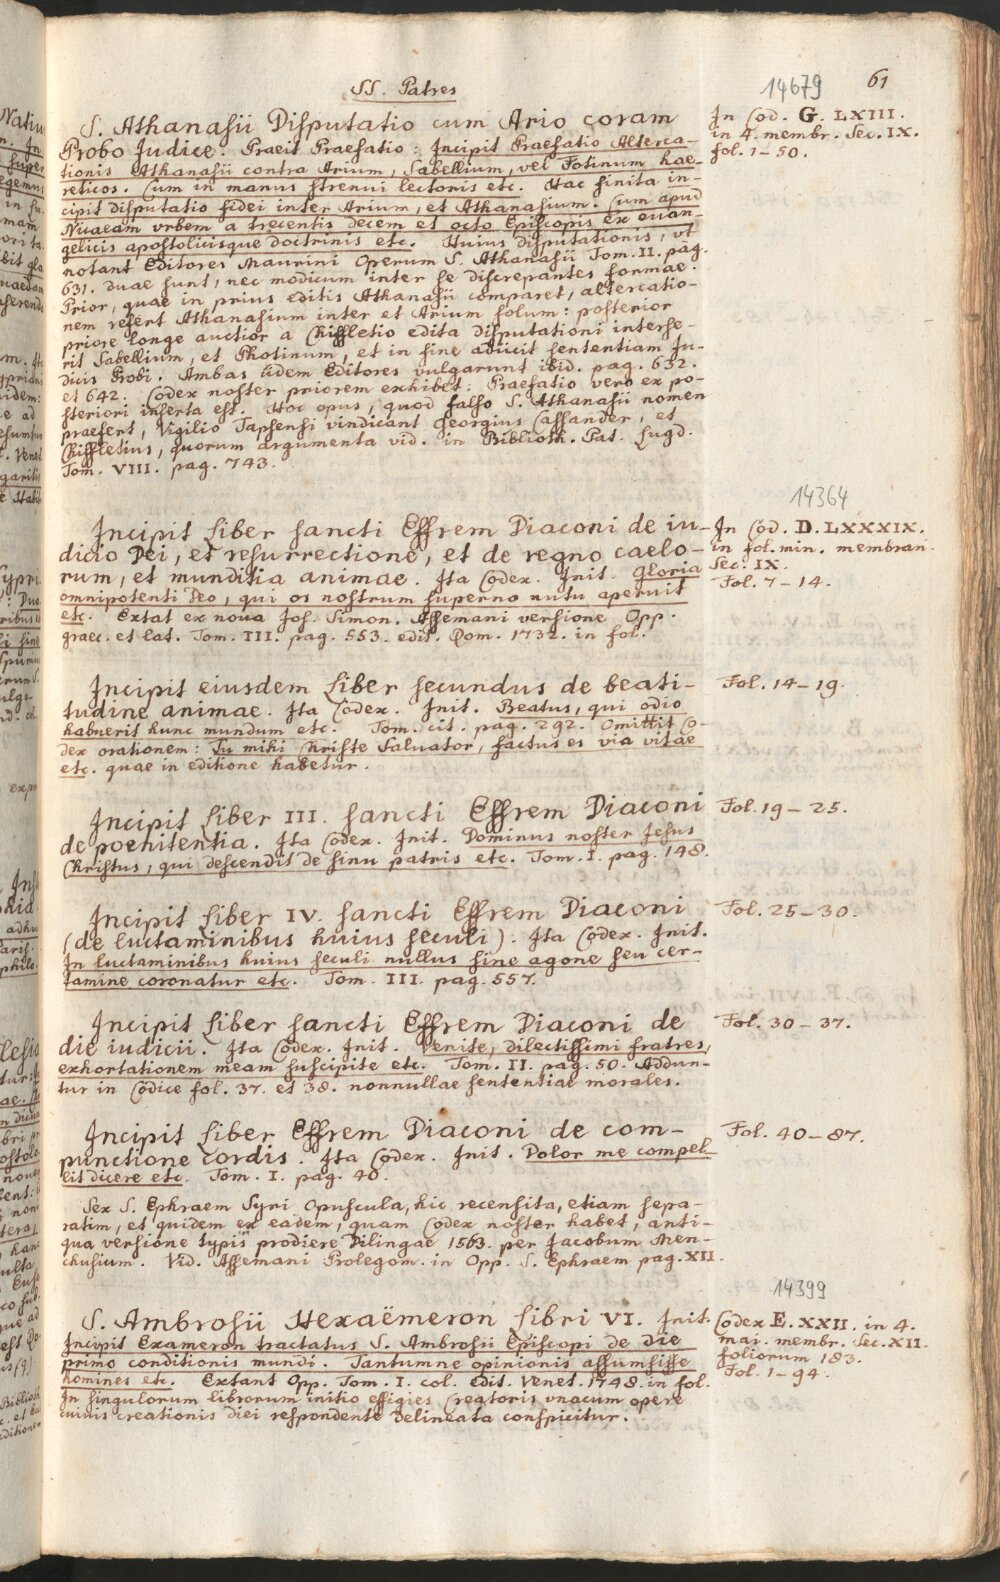 SS. Patres
14679
61
S. Athanasii Disputatio cum Ario coram
Probo Judice. Praeit Praefatio: Incipit Praefatio Alterca-
tionis Athanasii contra Arium, Sabellium, vel Fotinum hae-
reticos. Cum in manus strenui lectoris etc. Hac finita in-
cipit disputatio fidei inter Arium, et Athanasium. Cum apud
Nicaeam vrbem a trecentis decem et octo Episcopis ex euan-
gelicis apostolicisque doctrinis etc. Huius disputationis, vt
notant Editores Maurini Operum S. Athanasii Tom. II. pag.
631. duae sunt, nec modicum inter se discrepantes formae.
Prior, quae in prius editis Athanasii comparet, altercatio-
nem refert Athanasium inter et Arium solum: posterior
priore longe auctior a Chiffletio edita disputationi interse-
rit Sabellium, et Photinum, et in fine adiicit sententiam Ju-
dicis Probi. Ambas iidem Editores vulgarunt ibid. pag. 632.
et 642. Codex noster priorem exhibet: Praefatio vero ex po-
steriori inserta est. Hoc opus, quod falso S. Athanasii nomen
praefert, Vigilio Tapsensi vindicant Georgius Cassander, et
Chiffletius, quorum argumenta vid. in Biblioth. Pat. Lugd.
Tom. VIII. pag. 743.
In Cod. G. LXIII.
in 4. membr. Sec. IX.
fol. 1-50.
14364
Incipit Liber sancti Effrem Diaconi de iu-
dicio Dei, et resurrectione, et de regno caelo-
rum, et munditia animae. Ita Codex. Init. Gloria
omnipotenti Deo, qui os nostrum superno nutu aperuit
etc. Extat ex noua Jos. Simon. Assemani versione Opp.
graec. et lat. Tom. III. pag. 553. edit. Rom. 1732. in fol.
In Cod. D. LXXXIX.
in fol. min. membran.
Sec. IX.
Fol. 7-14.
Incipit eiusdem Liber secundus de beati-
tudine animae. Ita Codex. Init. Beatus, qui odio
habuerit hunc mundum etc. Tom. cit. pag. 292. Omittit Co-
dex orationem: Tu mihi Christe Saluator, factus es via vitae
etc. quae in editione habetur.
Fol. 14-19.
Incipit Liber III. sancti Effrem Diaconi
de poenitentia. Ita Codex. Init. Dominus noster Jesus
Christus, qui descendit de sinu patris etc. Tom. I. pag. 148.
Fol. 19-25.
Incipit Liber IV. sancti Effrem Diaconi
(de luctaminibus huius seculi). Ita Codex. Init.
In luctaminibus huius seculi nullus sine agone seu cer-
tamine coronatur etc. Tom. III. pag. 557.
Fol. 25-30.
Incipit Liber sancti Effrem Diaconi de
die iudicii. Ita Codex. Init. Venite, dilectissimi fratres,
exhortationem meam suscipite etc. Tom. II. pag. 50. Addun-
tur in Codice fol. 37. et 38. nonnullae sententiae morales.
Fol. 30-37.
Incipit Liber Effrem Diaconi de com-
punctione cordis. Ita Codex. Init. Dolor me compel-
lit dicere etc. Tom. I. pag. 40.
Fol. 40-87.
Sex S. Ephraem Syri Opuscula, hic recensita, etiam sepa-
ratim, et quidem ex eadem, quam Codex noster habet, anti-
qua versione typis prodiere Dilingae 1563. per Jacobum Men-
chusium. Vid. Assemani Prolegom. in Opp. S. Ephraem pag. XII.
14399
S. Ambrosii Hexaëmeron Libri VI. Init.
Incipit Exameron tractatus S. Ambrosii Episcopi de die
primo conditionis mundi. Tantumne opinionis assumsisse
homines etc. Extant Opp. Tom. I. col. edit. Venet. 1748. in fol.
In singulorum librorum initio effigies Creatoris vnacum opere
cuiuis creationis diei respondente delineata conspicitur.
Codex E. XXII. in 4.
mai. membr. Sec. XII.
foliorum 183.
Fol. 1-94.